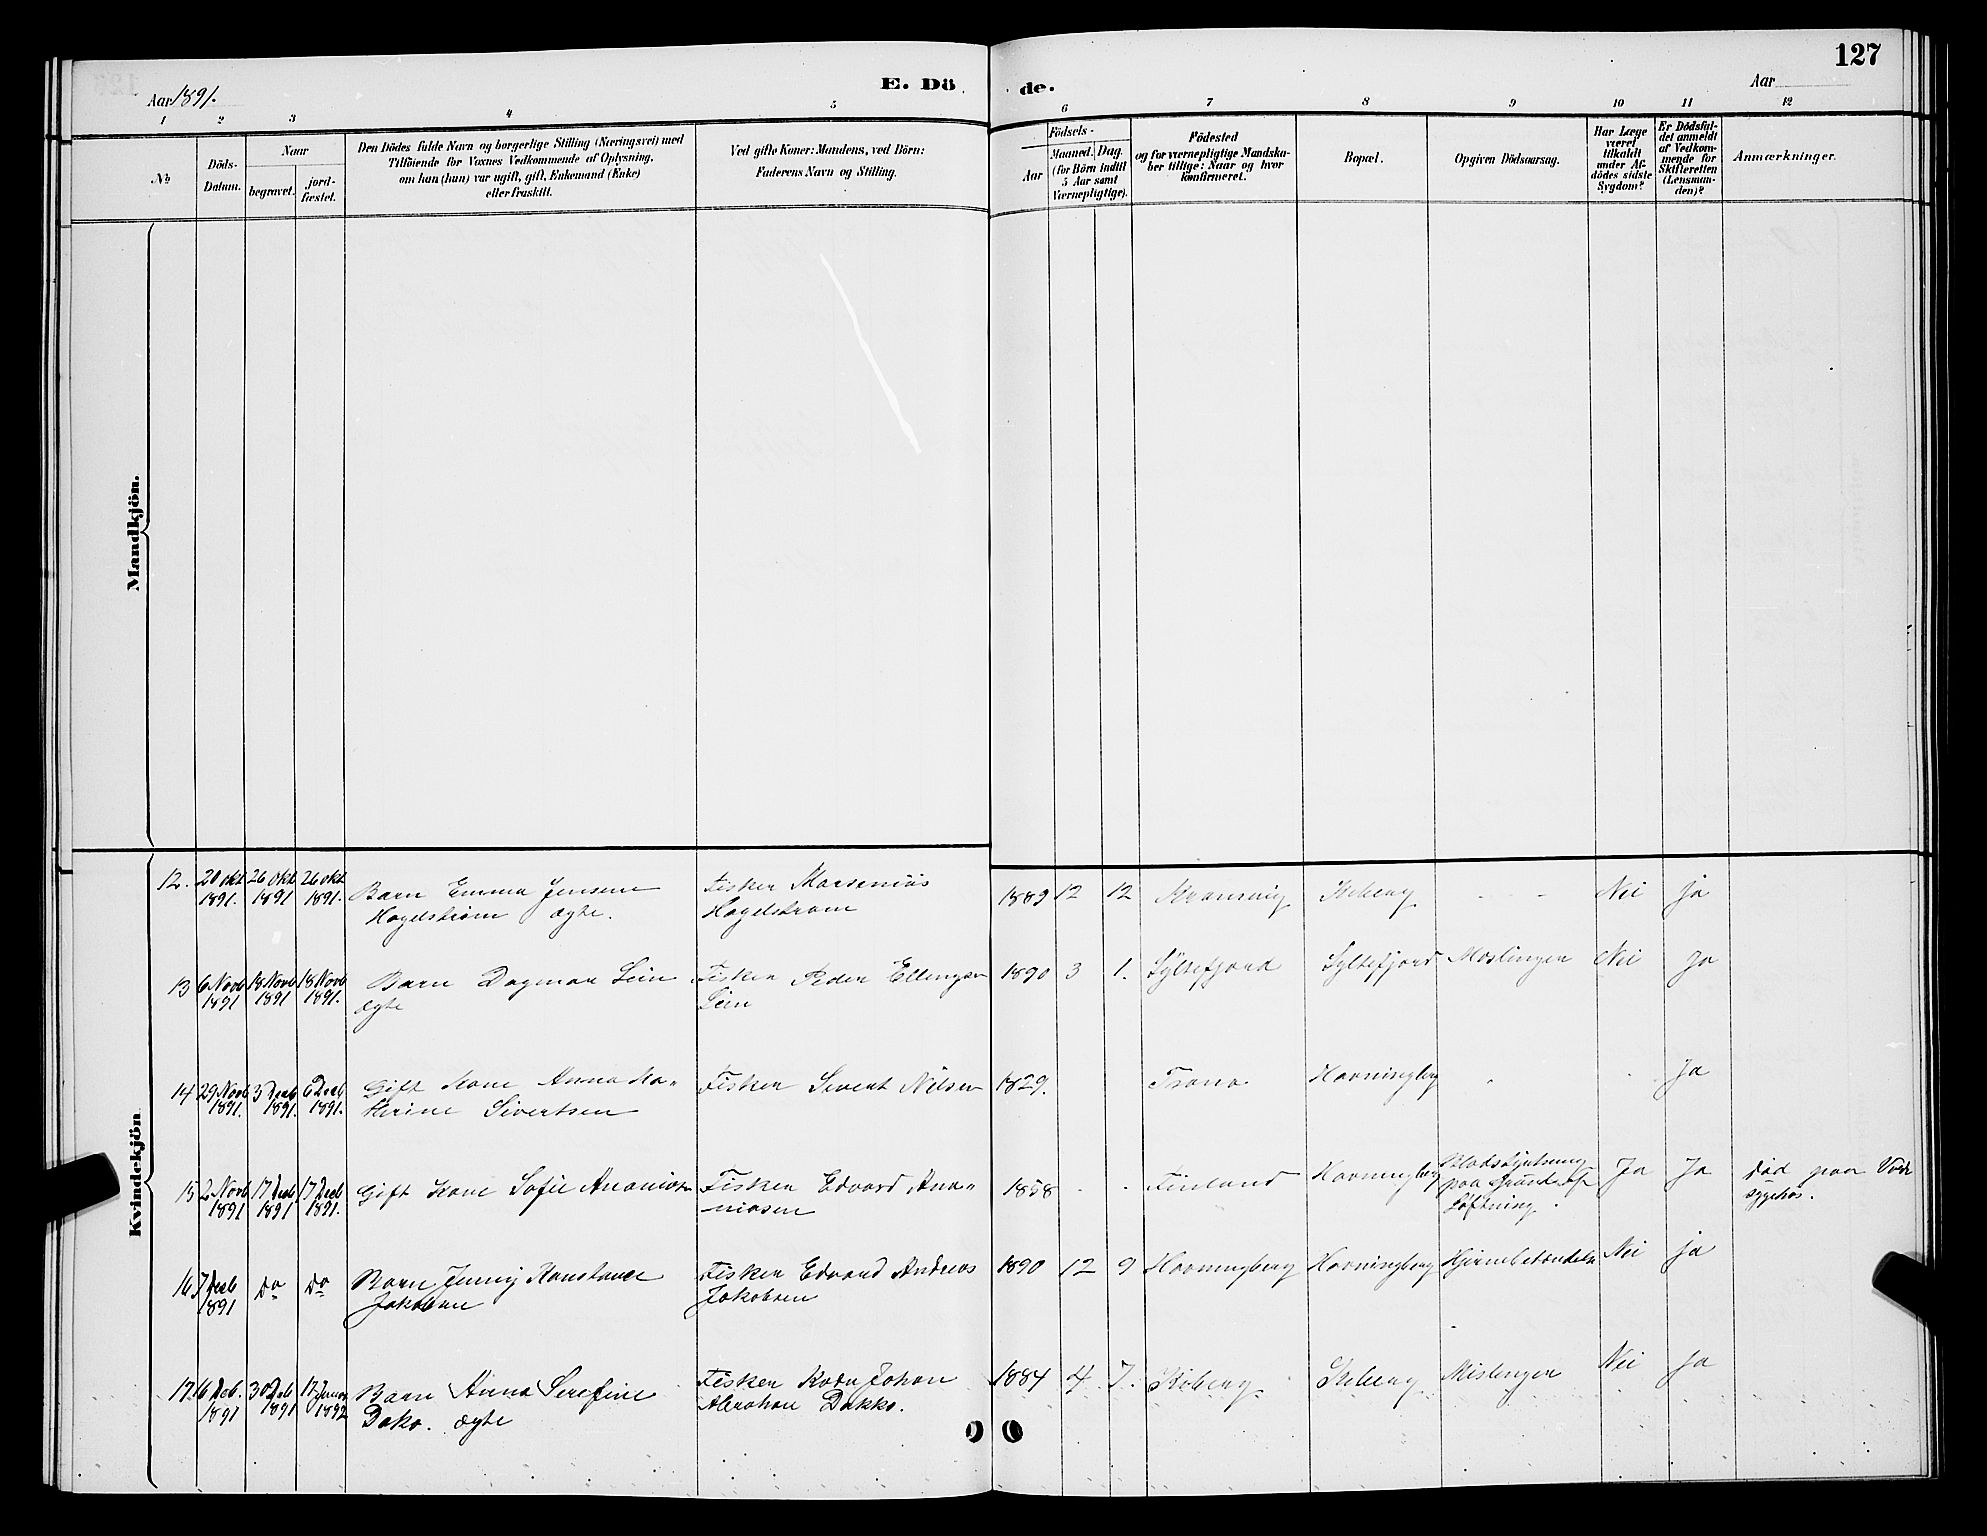 127
Aar 1891.
E. Dö
de.
Aar
1 2 3 4 5 6 7 8 9 10 11 12
№
Döds-
Datum.
Naar
begravet.
jord-
fæstet.
Den Dödes fulde Navn og borgerlige Stilling (Næringsvei) med
Tilföiende for Voxnes Vedkommende af Oplysning,
om han (hun) var ugift, gift, Enkemand (Enke)
eller fraskilt.
Ved gifte Koner: Mandens, ved Börn:
Faderens Navn og Stilling.
Födsels-
Aar
Maaned. Dag.
(for Börn indtil
5 Aar samt
Værnepligtige).
Födested
og for værnepligtige Mandska-
ber tillige: Naar og hvor
konfirmeret.
Bopæl.
Opgiven Dödsaarsag.
Har Læge
været
tilkaldt
under Af-
dödes sidste
Sygdom?
Er Dödsfal-
det anmeldt
af Vedkom-
mende for
Skifteretten
(Lensman-
den)?
Anmærkninger.
Mandkjön.
Kvindekjön
12. 20 okt 26 Okt 26 okt
1891. 1891 1891.
Barn Emma Jensene
Hagelstrøm ægte.
Fisker Marsenius
Hagelstrøm
1889 12 12 Kiberg - - Nei ja
13 6 Novb 18 Novb 18 Novb
1891 1891 1891.
Barn Dagmar Lein
ægte
Fisker Peder Ellingsen
Lein
1890 3 1. Syltefjord Syltefjord Meslinger Nei ja
14 29 Novb 3 Decb 6 Decb
1891. 1891. 1891.
Gift Kone Anna Ka-
therine Sivertsen
Fisker Sivert Nilsen
1829. Tranø Havningberg Ja
15 2 Novb 17 Decb 17 Decb
1891 1891 1891.
Gift Kone Sofie Ananiasen
Fisker Edvard Ana-
niasen
1858 - - Finland Havningberg
Blodstyrtning
paa Grund af
Løftning.
Ja Ja
død paa Vadsø
sygehus.
16 7 Decb Do Do
1891
Barn Jenny Konstance
Jakobsen
Fisker Edvard Andreas
Jakobsen
1890 12 9 Havningberg Havningberg Hjernebetændelse Nei ja
17. 16 Deb. 30 Deb 17 Januar
1891 1891 1892
Barn Anna Serefine
Dako. ægte
Fisker Karn Johan
Abraham Dakko.
1884 4 7. Kiberg Kiberg Mislinger Nei Ja